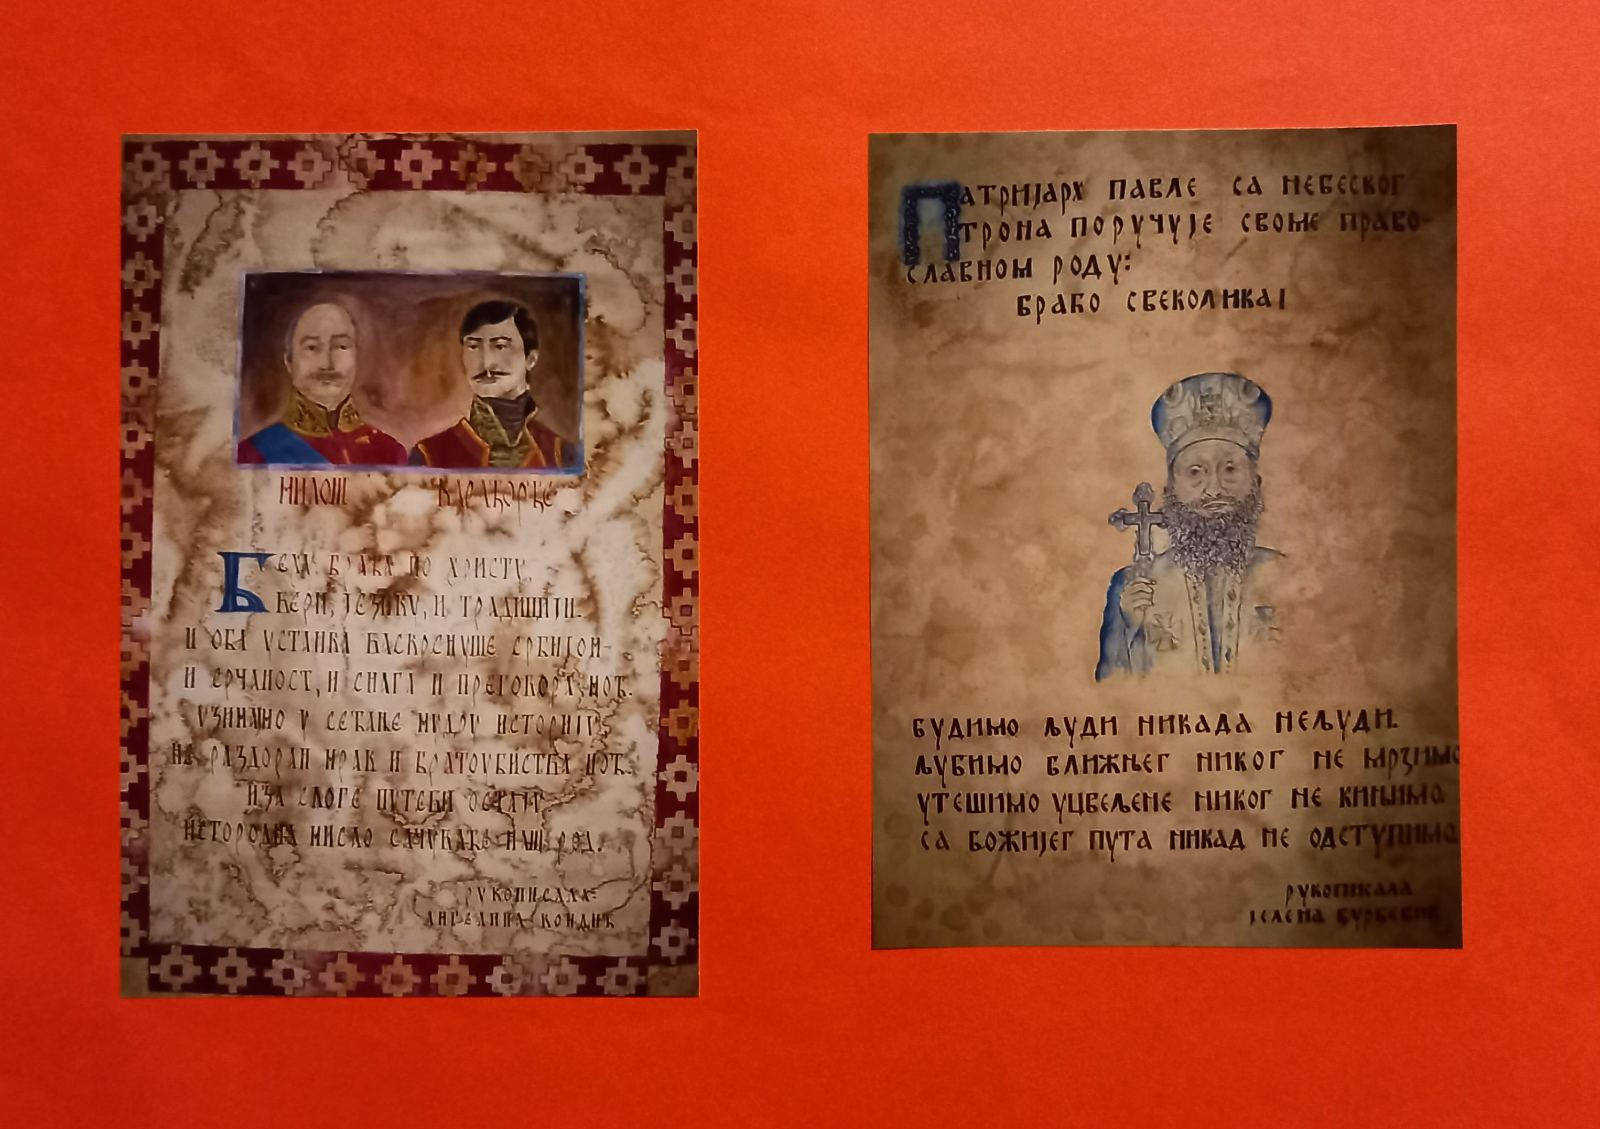 МИЛОШ КАРАЂОРЂЕ
БЕХУ БРАЋА ПО ХРИСТУ,
ВЕРИ, ЈЕЗИКУ, И ТРАДИЦИЈИ.
И ОБА УСТАНКА ВАСКРСНУШЕ СРБИЈОМ-
И СРЧАНОСТ, И СНАГА И ПРЕГОВОРА МОЋ.
УЗИМАМО У СЕЋАЊЕ МУДРУ ИСТОРИЈУ,
НЕ РАЗДОРАН МРАК И БРАТОУБИСТВА НОЋ.
ИЗА СЛОГЕ ПУТЕВИ ОСТАЈУ
ИСТОРОДНА МИСАО САЧУВАЋЕ НАШ РОД.
РУКОПИСАЛА:
АНГЕЛИНА КОНДИЋ
ПАТРИЈАРХ ПАВЛЕ СА НЕБЕСКОГ
ТРОНА ПОРУЧУЈЕ СВОМЕ ПРАВО-
СЛАВНОМ РОДУ:
БРАЋО СВЕКОЛИКА!
БУДИМО ЉУДИ НИКАДА НЕЉУДИ.
ЉУБИМО БЛИЖЊЕГ НИКОГ НЕ МРЗИМО
УТЕШИМО УЦВЕЉЕНЕ НИКОГ НЕ КИЊИМО
СА БОЖИЈЕГ ПУТА НИКАД НЕ ОДСТУПИМО
РУКОПИСАЛА
ЈЕЛЕНА ЂУРЂЕВИЋ